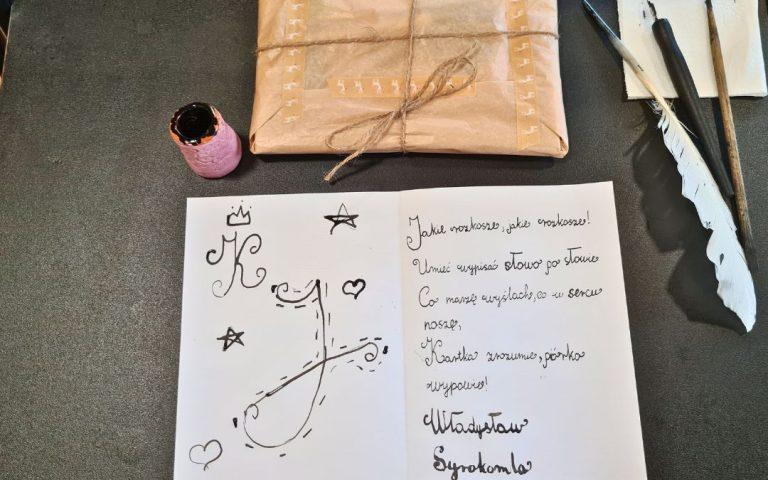 K
Jakie rozkosze, jakie rozkosze!
Umieć wypisać słowo po słowie
Co marzę wyślach, co w sercu
noszę,
Kartka zrozumie, pórko
wypowie!
Władysław
Syrokomla